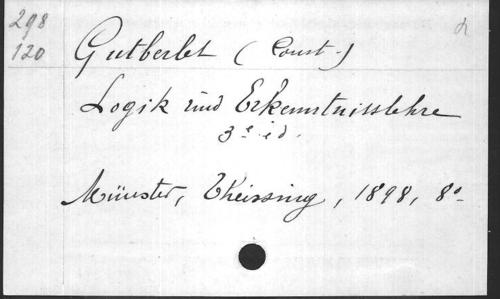 298
120
Gutberlet (Const.)
Logik und Erkenntnisslehre
3e éd.
Münster, Theissing, 1898, 8°